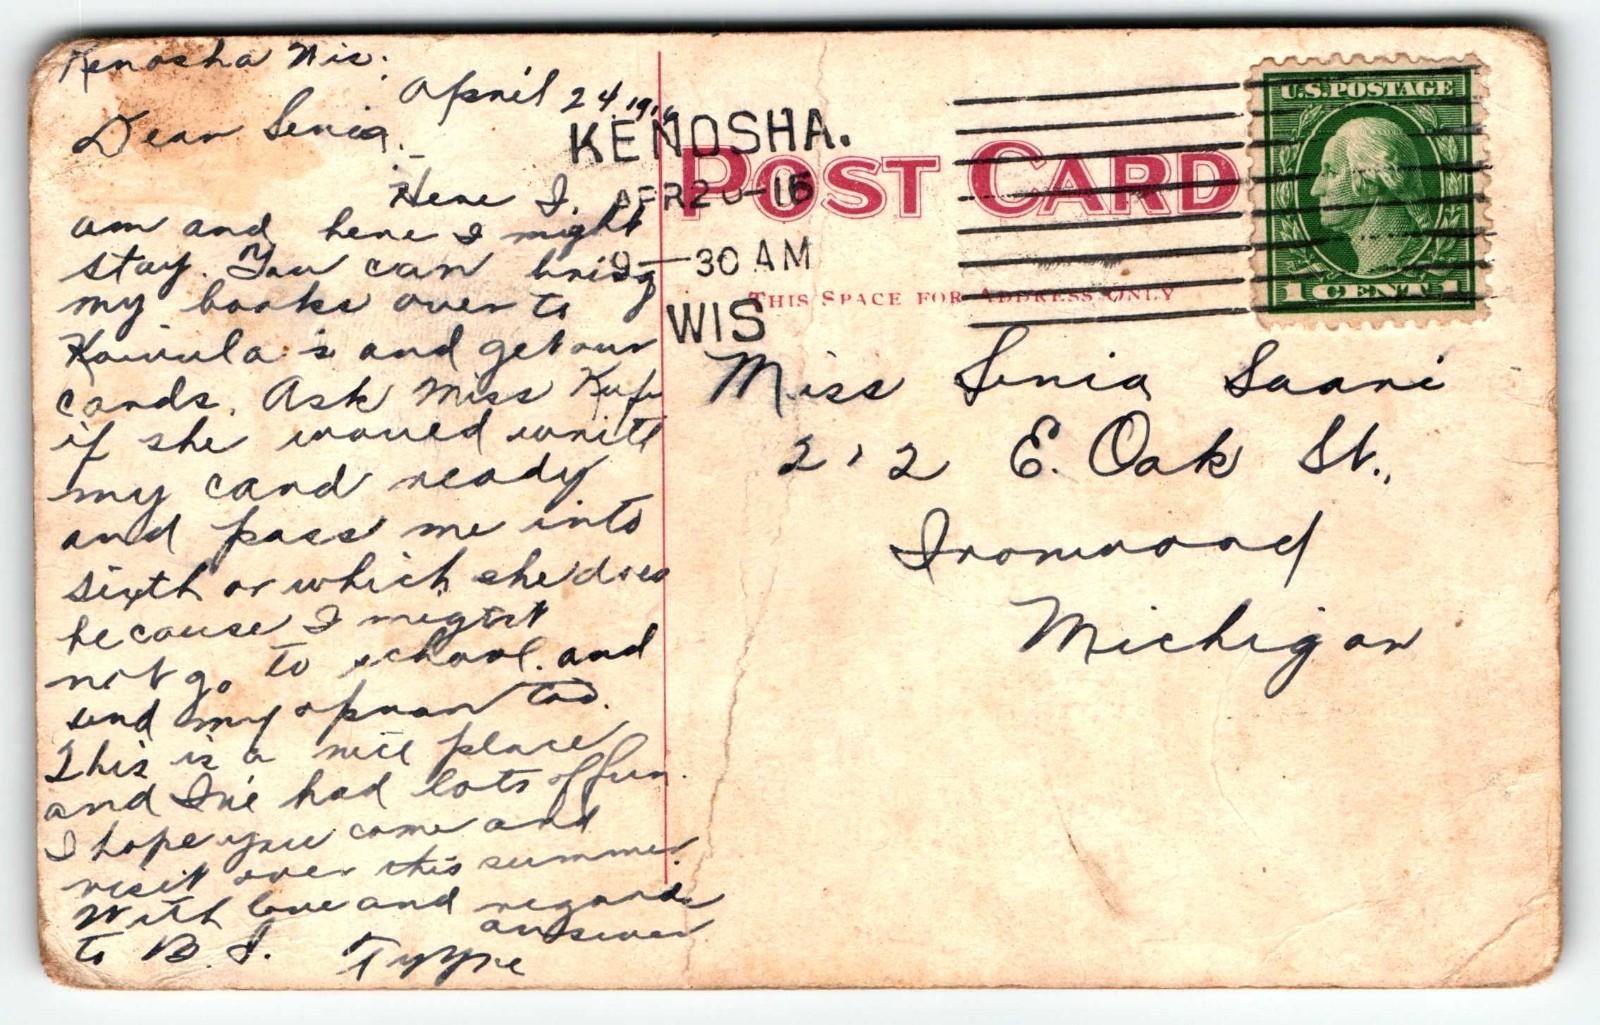 Kenosha Wis.
April 24, 1916
Dear Senia,
Here I
am and here I might
stay. You can bring
my books over to
Koivula's and get our
cards. Ask Miss
if she woued write
my card ready
and pass me into
sixth or which she does
because I might
not go to school. and
send my too.
This is a nice place
and I've had lots of fun.
I hope you come and
visit over this summer
With love and regards
to B. S. answer
Tyyne
KENOSHA.
APR 2 -16
9-30 AM
WIS
POST CARD
THIS SPACE FOR ADDRESS ONLY
U.S. POSTAGE
1 CENT 1
Miss Senia Saari
212 E. Oak St.,
Ironwood
Michigan